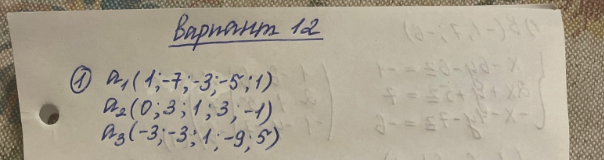 Вариант 12
① a₁(1;-7;-3;-5;1)
a₂(0;3;1;3;-1)
a₃(-3;-3;1;-9;5)